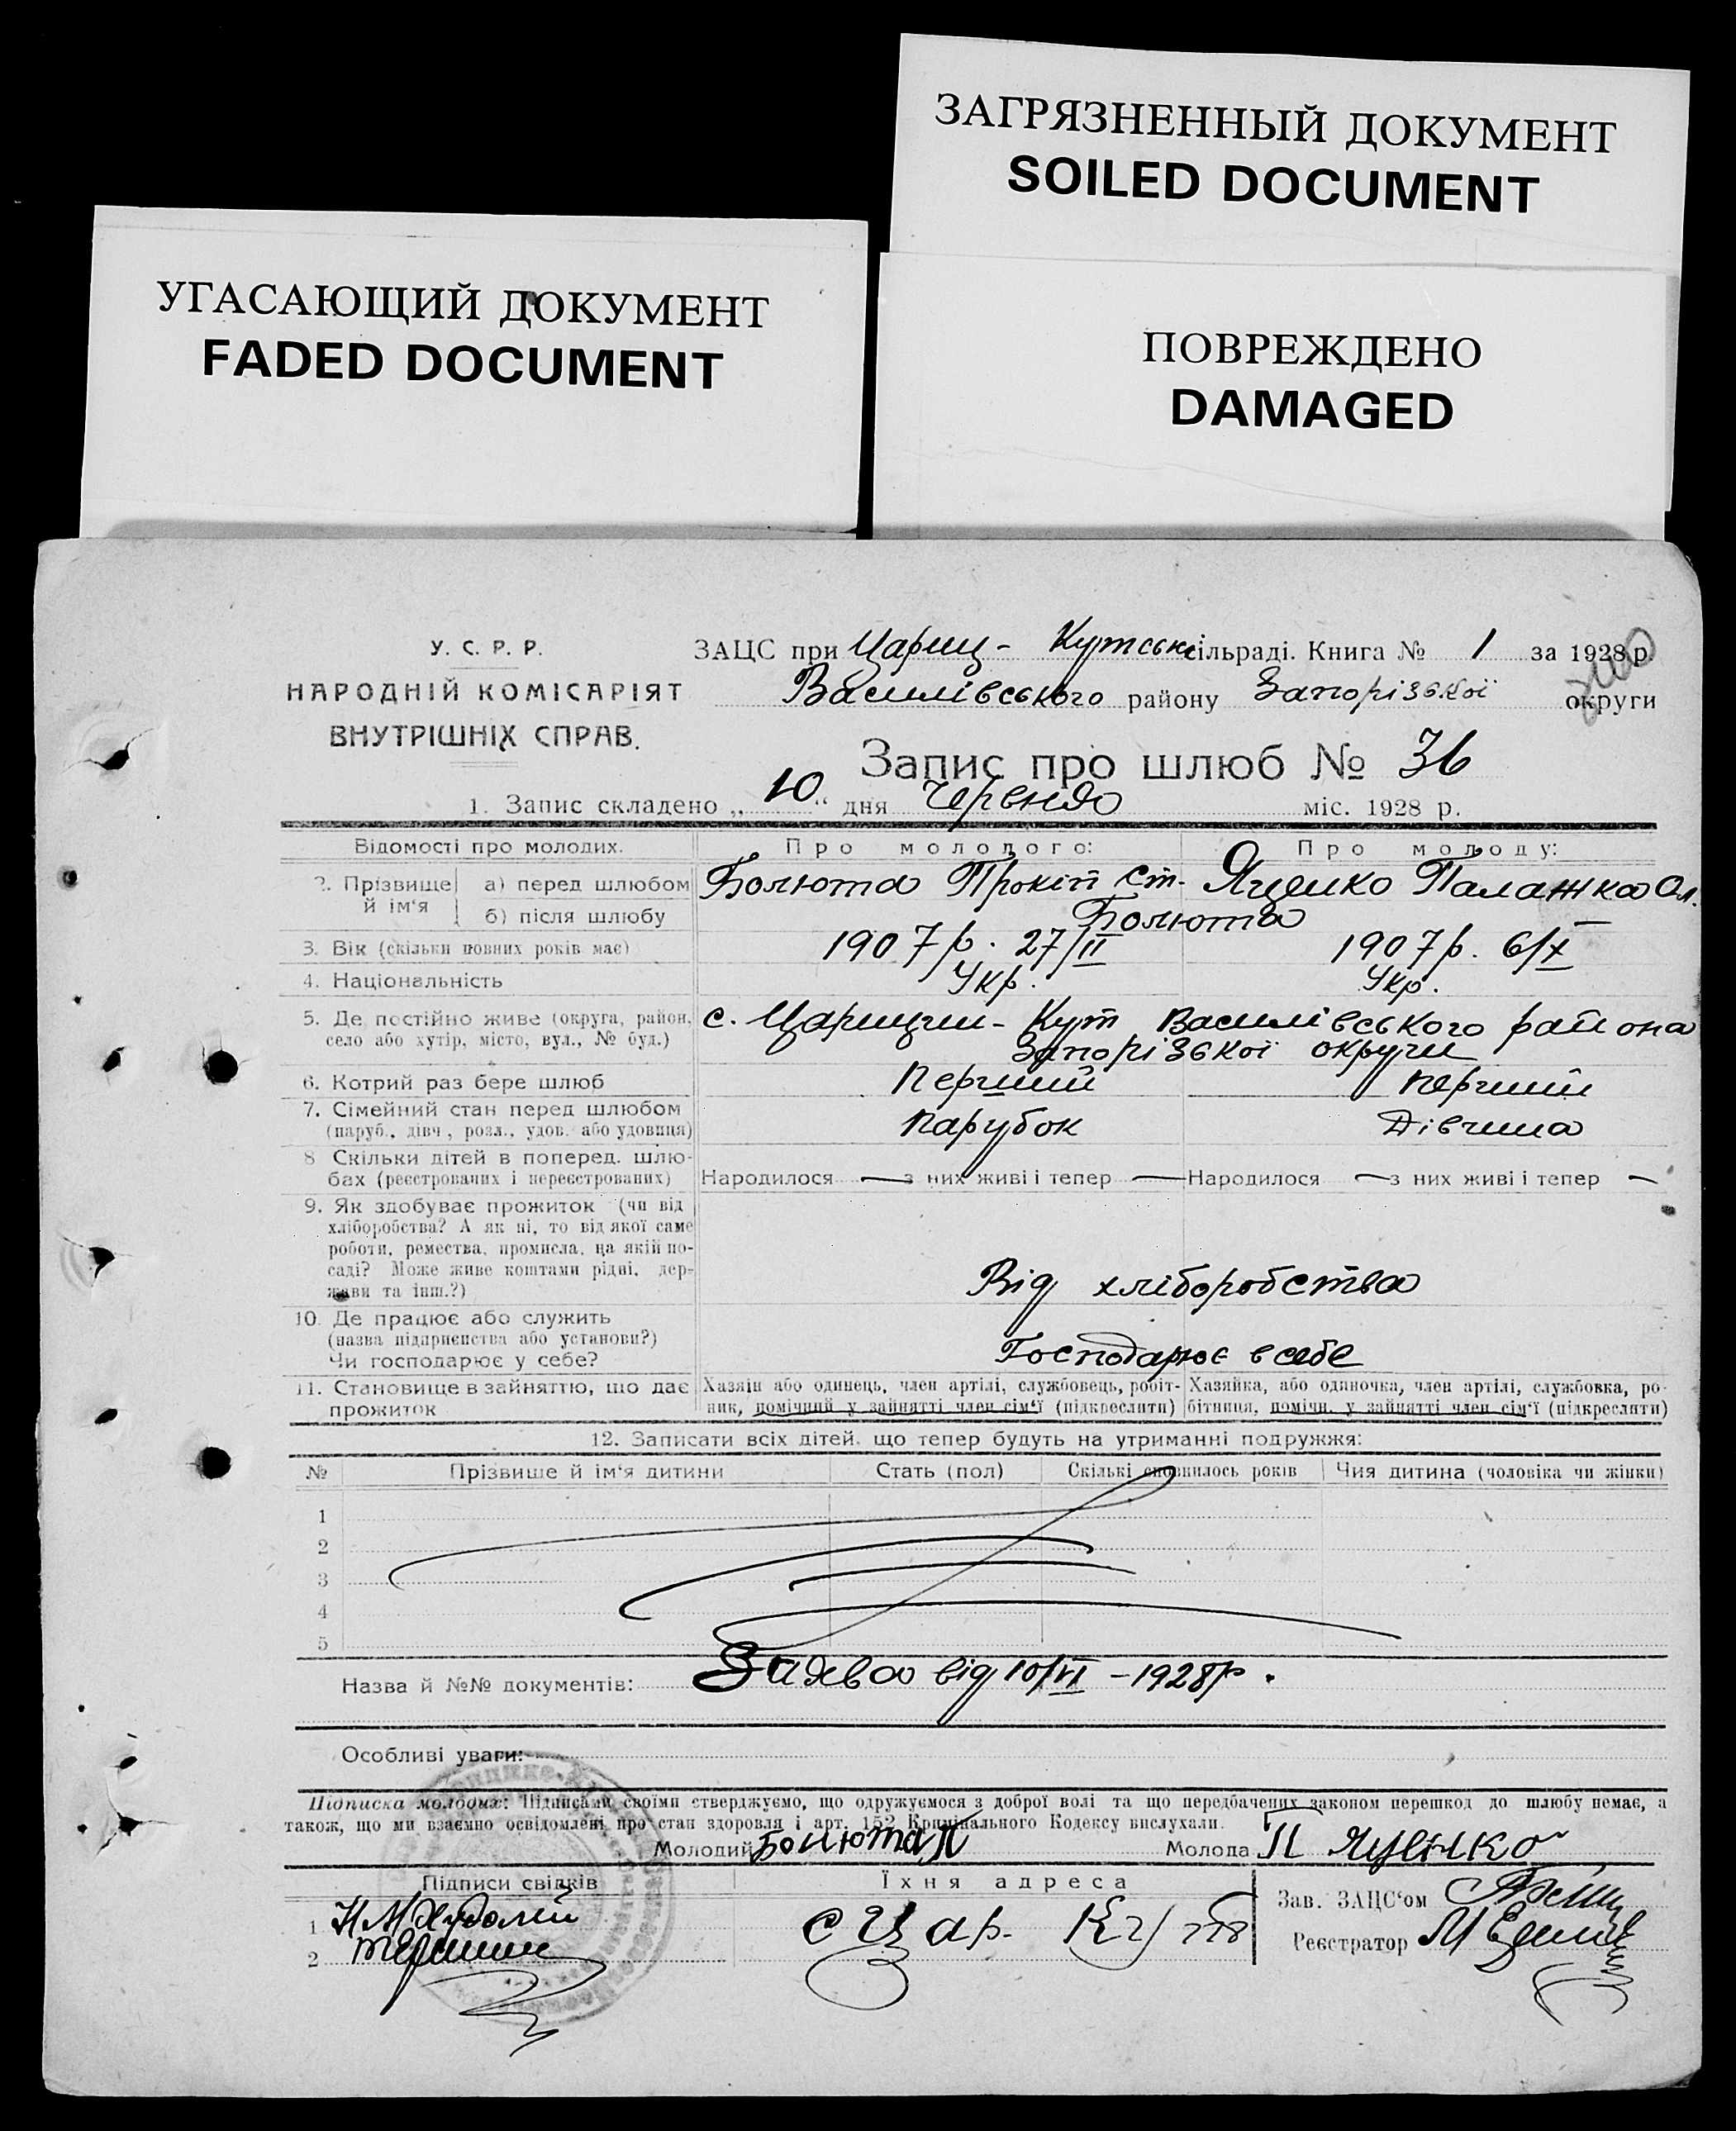 ЗАГРЯЗНЕННЫЙ ДОКУМЕНТ
SOILED DOCUMENT
УГАСАЮЩИЙ ДОКУМЕНТ
FADED DOCUMENT
ПОВРЕЖДЕНО
DAMAGED
У. С. Р. Р.
НАРОДНІЙ КОМІСАРІЯТ
ВНУТРІШНІХ СПРАВ.
ЗАЦС при Цариц- Кутськ сільраді. Книга № 1 за 1928 р.
Василівського району Запорізької округи
Запис про шлюб № 36
1. Запис складено „ 10 “ дня Червня міс. 1928 р.
Відомості про молодих. Про молодого: Про молоду:
2. Прізвище й ім'я а) перед шлюбом Болюта Прокіп Ст. Яценко Палажка Ол.
б) після шлюбу Болюта
3. Вік (скільки повних років має) 1907 р. 27/II 1907 р. 6/X
4. Національність Укр. Укр.
5. Де постійно живе (округа, район, село або хутір, місто, вул., № буд.) с. Царицин-Кут Василівського района
Запорізької округи
6. Котрий раз бере шлюб Перший Перший
7. Сімейний стан перед шлюбом Парубок Дівчина
(паруб., дівч., розл., удов. або удовиця)
8 Скільки дітей в поперед. шлю-
бах (реєстрованих і нереєстрованих) Народилося — з них живі і тепер — Народилося — з них живі і тепер —
9. Як здобуває прожиток (чи від
хліборобства? А як ні, то від якої саме
роботи, ремества, промисла, на якій по-
саді? Може живе коштами рідні, дер-
жави та інш.?) Від хліборобства
10. Де працює або служить
(назва підприєпства або установи?)
Чи господарює у себе? Господарює в себе
11. Становище в зайняттю, що дає прожиток
Хазяїн або одинець, член артілі, службовець, робіт-
ник, помічний у зайнятті член сім'ї (підкреслити)
Хазяйка, або одиночка, член артілі, службовка, ро-
бітниця, помічн. у зайнятті член сім'ї (підкреслити)
12. Записати всіх дітей, що тепер будуть на утриманні подружжя:
№ Прізвище й ім'я дитини Стать (пол) Скількі сповнилось років Чия дитина (чоловіка чи жінки)
1
2
3
4
5
Назва й №№ документів: Заява від 10/VI – 1928 р.
Особливі уваги:
Підписка молодих: Підписами своїми стверджуємо, що одружуємося з доброї волі та що передбачених законом перешкод до шлюбу немає, а
також, що ми взаємно освідомлені про стан здоровля і арт. 152 Кримінального Кодексу вислухали.
Молодий Болюта П Молода П Яценко
Підписи свідків Їхня адреса
1
2
с Цар. Кут
Зав. ЗАЦС'ом
Реєстратор